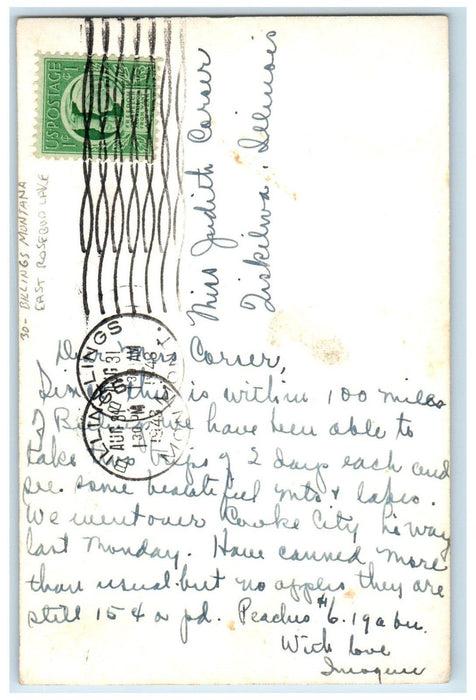 U.S. POSTAGE
1¢ 1¢
FREEDOM
30 - BILLINGS MONTANA
EAST ROSEBUD LAKE
Miss Judith Corner
Tiskilwa, Illinois
BILLINGS
AUG 31
1943
MONT.
BILLINGS
AUG 30
130 PM
1943
MONT.
Dear Miss Corner,
Since this is within 100 miles
of Billings we have been able to
take trips of 2 days each and
see some beautiful mts & lakes.
We went over Cooke City hi way
last Monday. Have canned more
than usual but no apples they are
still 15¢ a pd. Peaches $6.19 a bu.
With love
Imogene